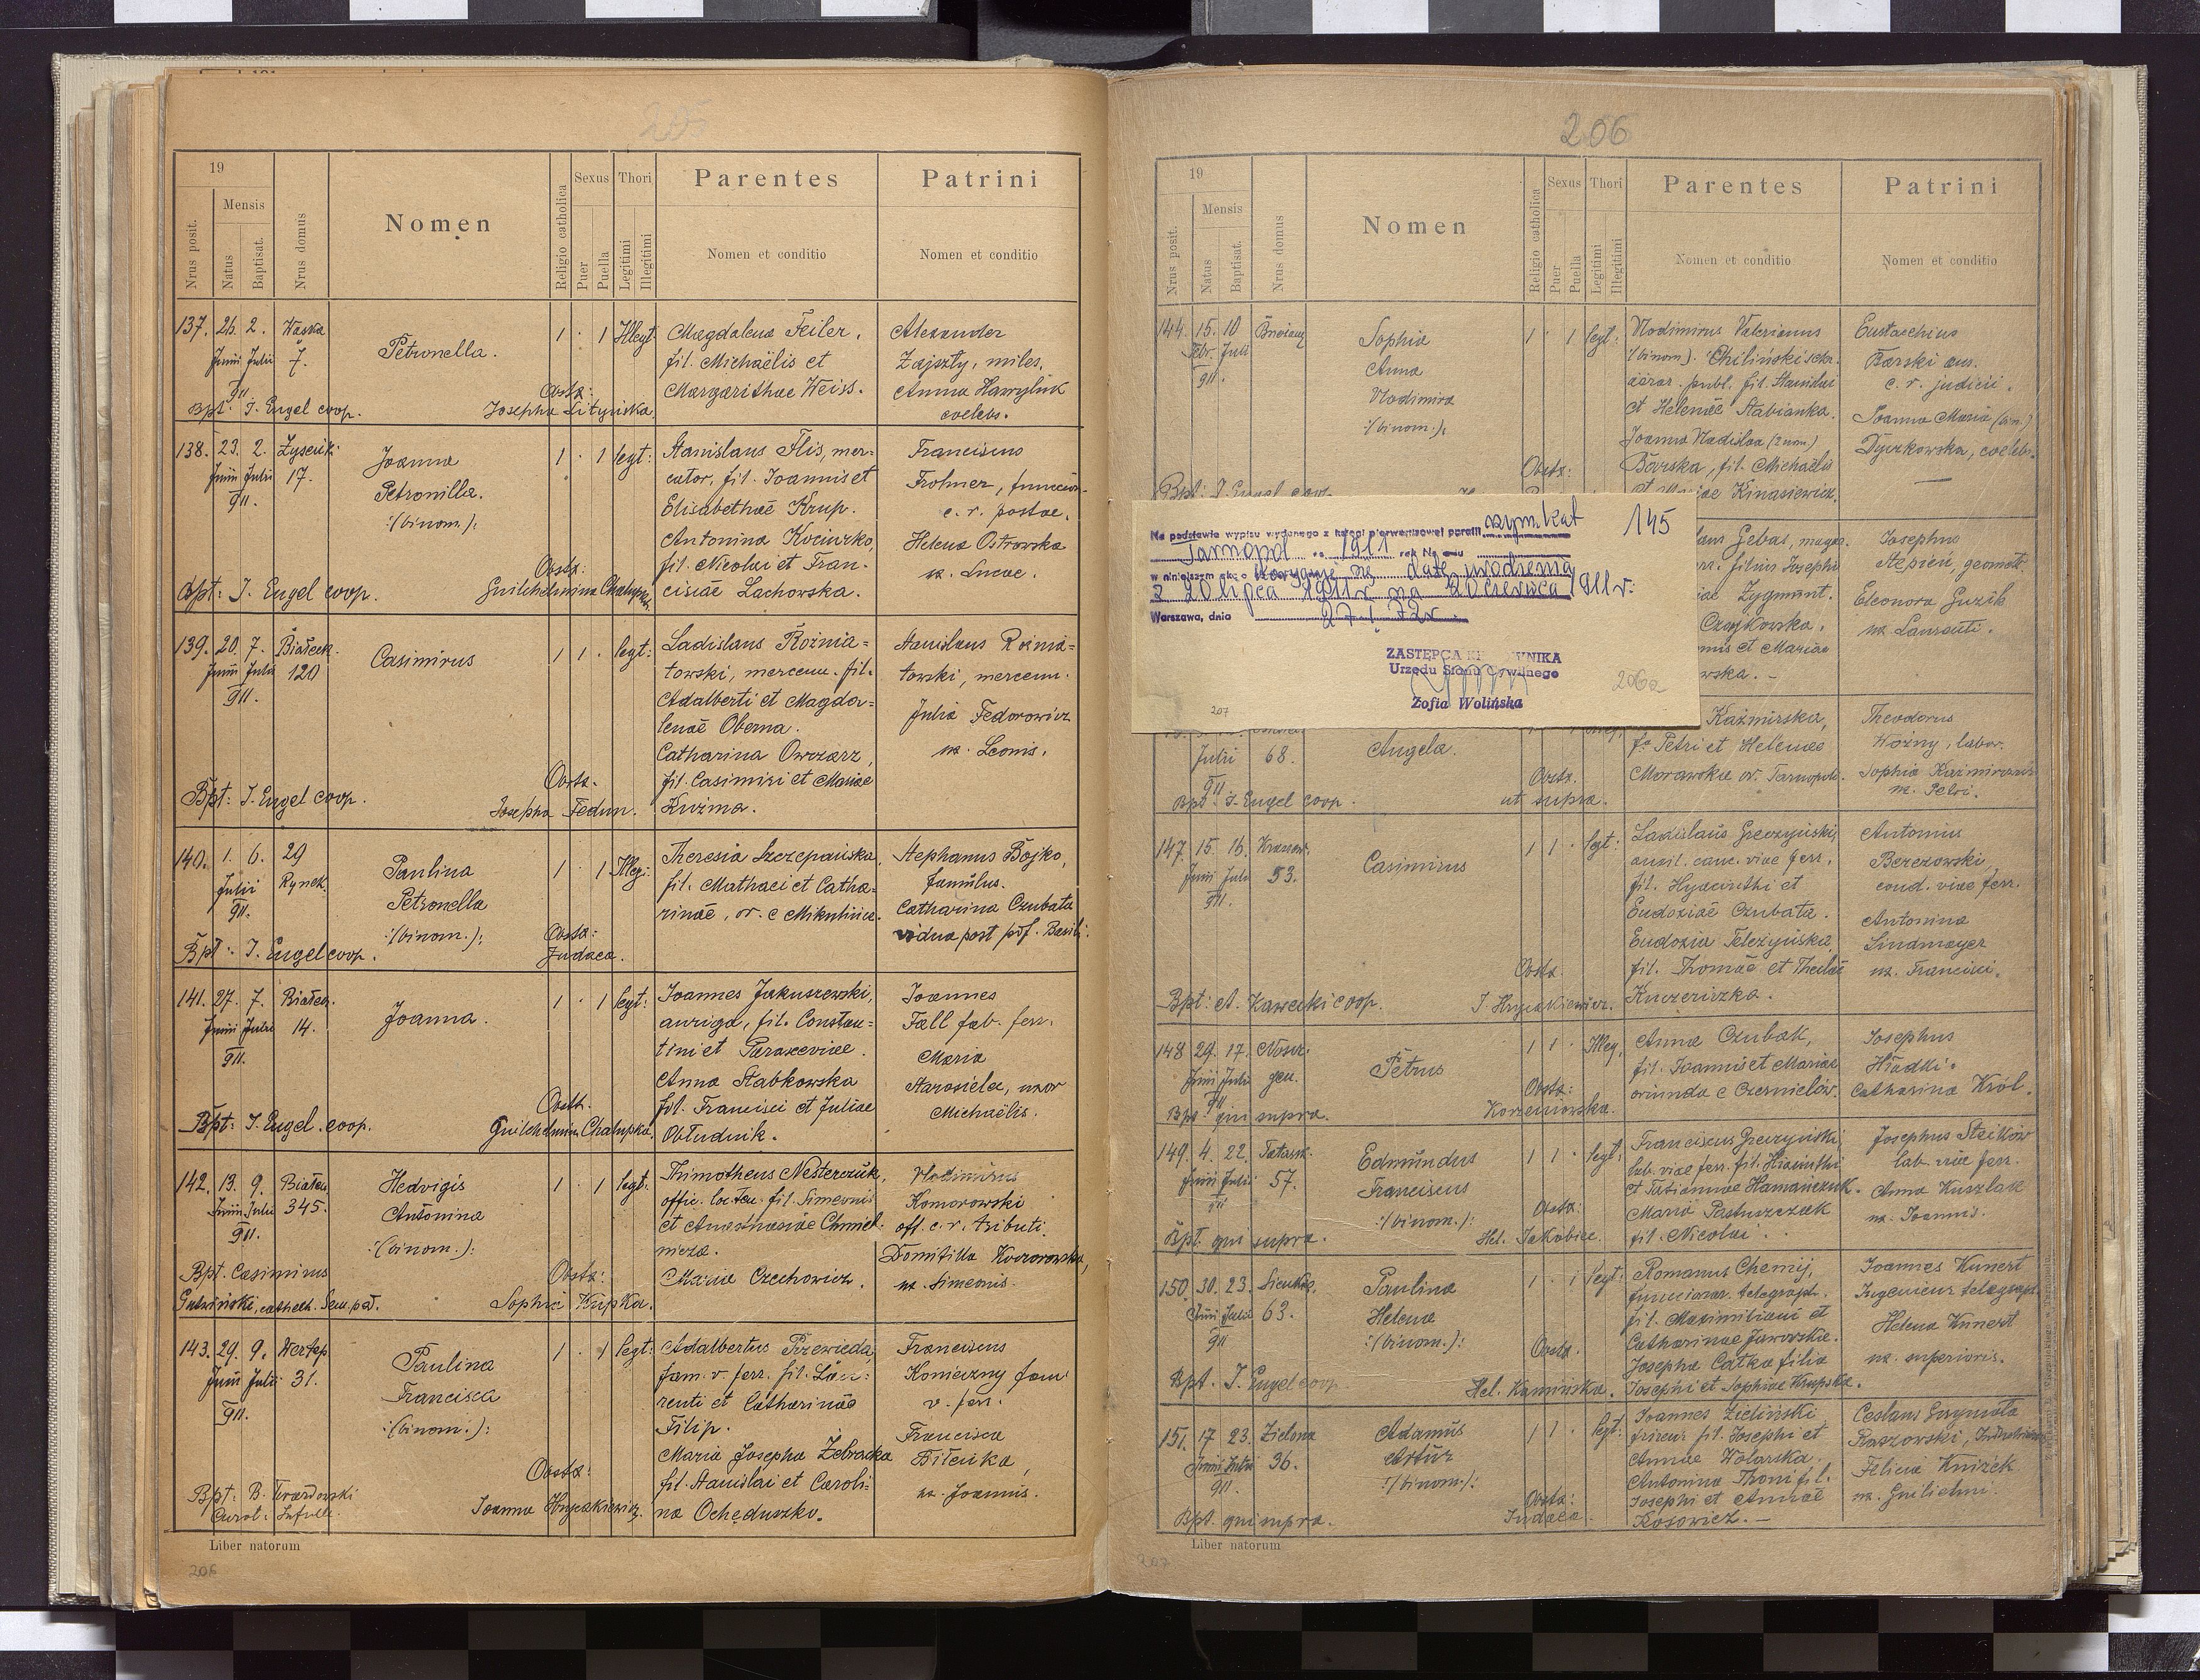 205
19
Mensis
Nrus posit.
Natus
Baptisat.
Nrus domus
Nomen
Religio catholica
Sexus
Puer
Puella
Thori
Legitimi
Illegitimi
Parentes
Nomen et conditio
Patrini
Nomen et conditio
137. 26. 2.
Junii Julii 7.
911.
Petronella.
1 · 1 Illegt:
Magdalena Feiler,
fil. Michaëlis et
Margarithae Weiss.
Alexander
Zajszly, miles.
Anna Hawryluk
coelebs.
Obstz:
Bpt: J. Engel coop.
Josepha Lityńska.
138. 23. 2.
Junii Julii 17.
911.
Joanna
Petronilla.
:/binom.):
1 · 1 legt:
Stanislaus Flis, mer-
cator, fil. Joannis et
Elisabethae Krup.
Antonina Kociurko,
fil. Nicolai et Fran-
ciscae Lachowska.
Franciscus
c. r. postae.
Helena Ostrowska
ux. Lucae.
Obstz:
Bpt: J. Engel coop.
139. 20. 7. Białeck.
Junii Julii 120
911.
Casimirus
1 1 · legt:
Ladislaus Roźnia=
towski, mercenn. fil.
Adalberti et Magda=
lenae Oberna.
Catharina Owczarz,
fil. Casimiri et Mariae
Kuźma.
Stanislaus Roźnia=
towski, mercenn.
Julia Fedorowicz
ux. Leonis.
Obstz.
Bpt: J. Engel coop.
Josepha Fedun.
140. 1. 6. 29
Julii Rynek.
911.
Paulina
Petronella
:/binom.):
1 · 1 Illeg:
Theresia Szczepańska,
fil. Mathaei et Catha=
rinae, or. e Mikulińce.
Stephanus Bojko,
famulus.
Catharina Czubata
vidua post p̃f. Basili.
Obstz:
Bpt: J. Engel coop.
Judaea.
141. 27. 7. Białec.
Junii Julii 14.
911.
Joanna.
1 · 1 legt:
Joannes Jakuszewski,
auriga, fil. Constan=
tini et Parasceviae.
Anna Stabkowska
fil. Francisci et Juliae
Obłudnik.
Joannes
Fall fab. ferr.
Maria
Starosiela, uxor
Michaëlis.
Bpt: J. Engel. coop.
142. 13. 9.
Junii Julii 345.
911.
Hedvigis
Antonina
:/binom.):
1 · 1 legt:
Thimotheus Nesterczuk,
et Anastasiae Chmiel-
nicza.
Maria Czechowicz.
Vlodimirus
Komorowski
off. c. r. tributi.
Domitilla Koczorowska,
ux. Simeonis.
Obstz:
Bpt. Casimirus
Sophia Kupka.
143. 29. 9. Wertep
Junii Julii 31.
911.
Paulina
Francisca
:/binom.):
1 · 1 legt:
Adalbertus Przewieda,
fam. v. ferr. fil. Lau:
renti et Catharinae
Filip.
Maria Josepha Żebracka
fil. Stanislai et Caroli:
na Ochęduszko.
Franciscus
Konieczny fam
v. ferr.
Francisca
ux. Joannis.
Obstz:
Bpt: B. Twardowski
Joanna Hryńakiewicz.
Liber natorum
206
206
19
Mensis
Nrus posit.
Natus
Baptisat.
Nrus domus
Nomen
Religio catholica
Sexus
Puer
Puella
Thori
Legitimi
Illegitimi
Parentes
Nomen et conditio
Patrini
Nomen et conditio
144. 15. 10
Febr. Juli
911.
Sophia
Anna
Vlodimira
:/binom.):
1 · 1 legt:
Vlodimirus Valerianus
/binom). Chiliński
aerar. publ. fil. Stanislai
et Helenae Stabianka.
Joanna Vladislaa (2 nom.)
Borska, fil. Michaëlis
et Mariae Kinasiewicz.
Eustachius
Barski aus.
c. r. judicii.
Joanna Maria (bin.)
Dyczkowska, coelebs.
Obstz:
Bpt: J. Engel coop.
Na podstawie wypisu wydanego z księgi pierworisowej parafii rzym. kat
145
Tarnopol za 1911 rok Nr aktu
w niniejszym akcie koryguję się datę urodzenia
z 20 lipca 1911 r na 20 czerwca 1911 r.
Warszawa, dnia 27. I. 72 r
ZASTĘPCA KIEROWNIKA
Urzędu Stanu Cywilnego
Zofia Wolińska
206a
207
Gebas,
filius Josephi
Zygmunt.
Czajkowska.
et Mariae
wska. -
Josephus
Stępień, geometr.
Eleonora Guzik
ux. Laurenti.
Julii 68.
911
Angela.
Kaźmirska,
fa Petri et Helenae
Morawska or. Tarnopoli.
Theodorus
Woźny, labor.
ux. Petri.
Obstz.
Bpt. J. Engel coop.
ut supra.
147. 15. 16.
Junii Julii 53.
911.
Casimirus
1 1 · legt:
Ladislaus Greczyński,
auxil. canc. viae ferr.
fil. Hyacinthi et
Eudoxiae Czubata.
Eudoxia Teleżyńska,
fil. Thomae et Theclae
Kuczeriszka.
Antonius
Berezowski
cond. viae ferr.
Antonina
Lindmayer
ux. Francisci.
Obstz.
Bpt: A. Kawecki coop.
J. Hryńakiewicz.
148 29. 17.
Junii Julii
911
Petrus
1 1 · Illeg.
Anna Czubak,
fil. Joannis et Mariae
oriunda e Czernielów.
Josephus
Hładki.
Catharina Król.
Obstz:
Bpt. qui supra.
Korzeniowska.
149. 4. 22. Tatarsk.
Junii Julii 57.
911
Edmundus
Franciscus
:/binom.):
1 1 · legt:
Franciscus Greczyński,
lab. viae ferr. fil. Hiacinthi
et Tatiannae Hamanczuk.
Maria Pastuszczak
fil. Nicolai.
Josephus Steików
lab. viae ferr.
Anna Kuszlak
ux. Joannis.
Obstz:
Bpt. qui supra.
Hel. Jakobice.
150. 30. 23.
Juni Julii 63.
911
Paulina
Helena
:/binom.):
1 · 1 legt:
Romanus Chemij,
funcionar. telegraph.
fil. Maximiliani et
Catharinae Jaworskie.
Josepha Catka filia
Josephi et Sophiae Krupska.
Joannes Kunert
Ingenieur telegraph.
Helena Kunert
ux. superioris.
Obstz.
Bpt. J. Engel coop
Hel. Kamińska.
151. 17 23. Zielona
Junii Julii 36.
911.
Adamus
Artur
:/binom.):
1 1 · legt:
Joannes Zieliński
friseur fil. Josephi et
Annae Wolarska.
Antonina Thoni fil.
Josephi et Annae
Kosowicz. —
Ceslaus Grzymała
Felicia Knizek
ux. Guilielmi.
Obstz:
Bpt. qui supra.
Judaea.
Liber natorum
207